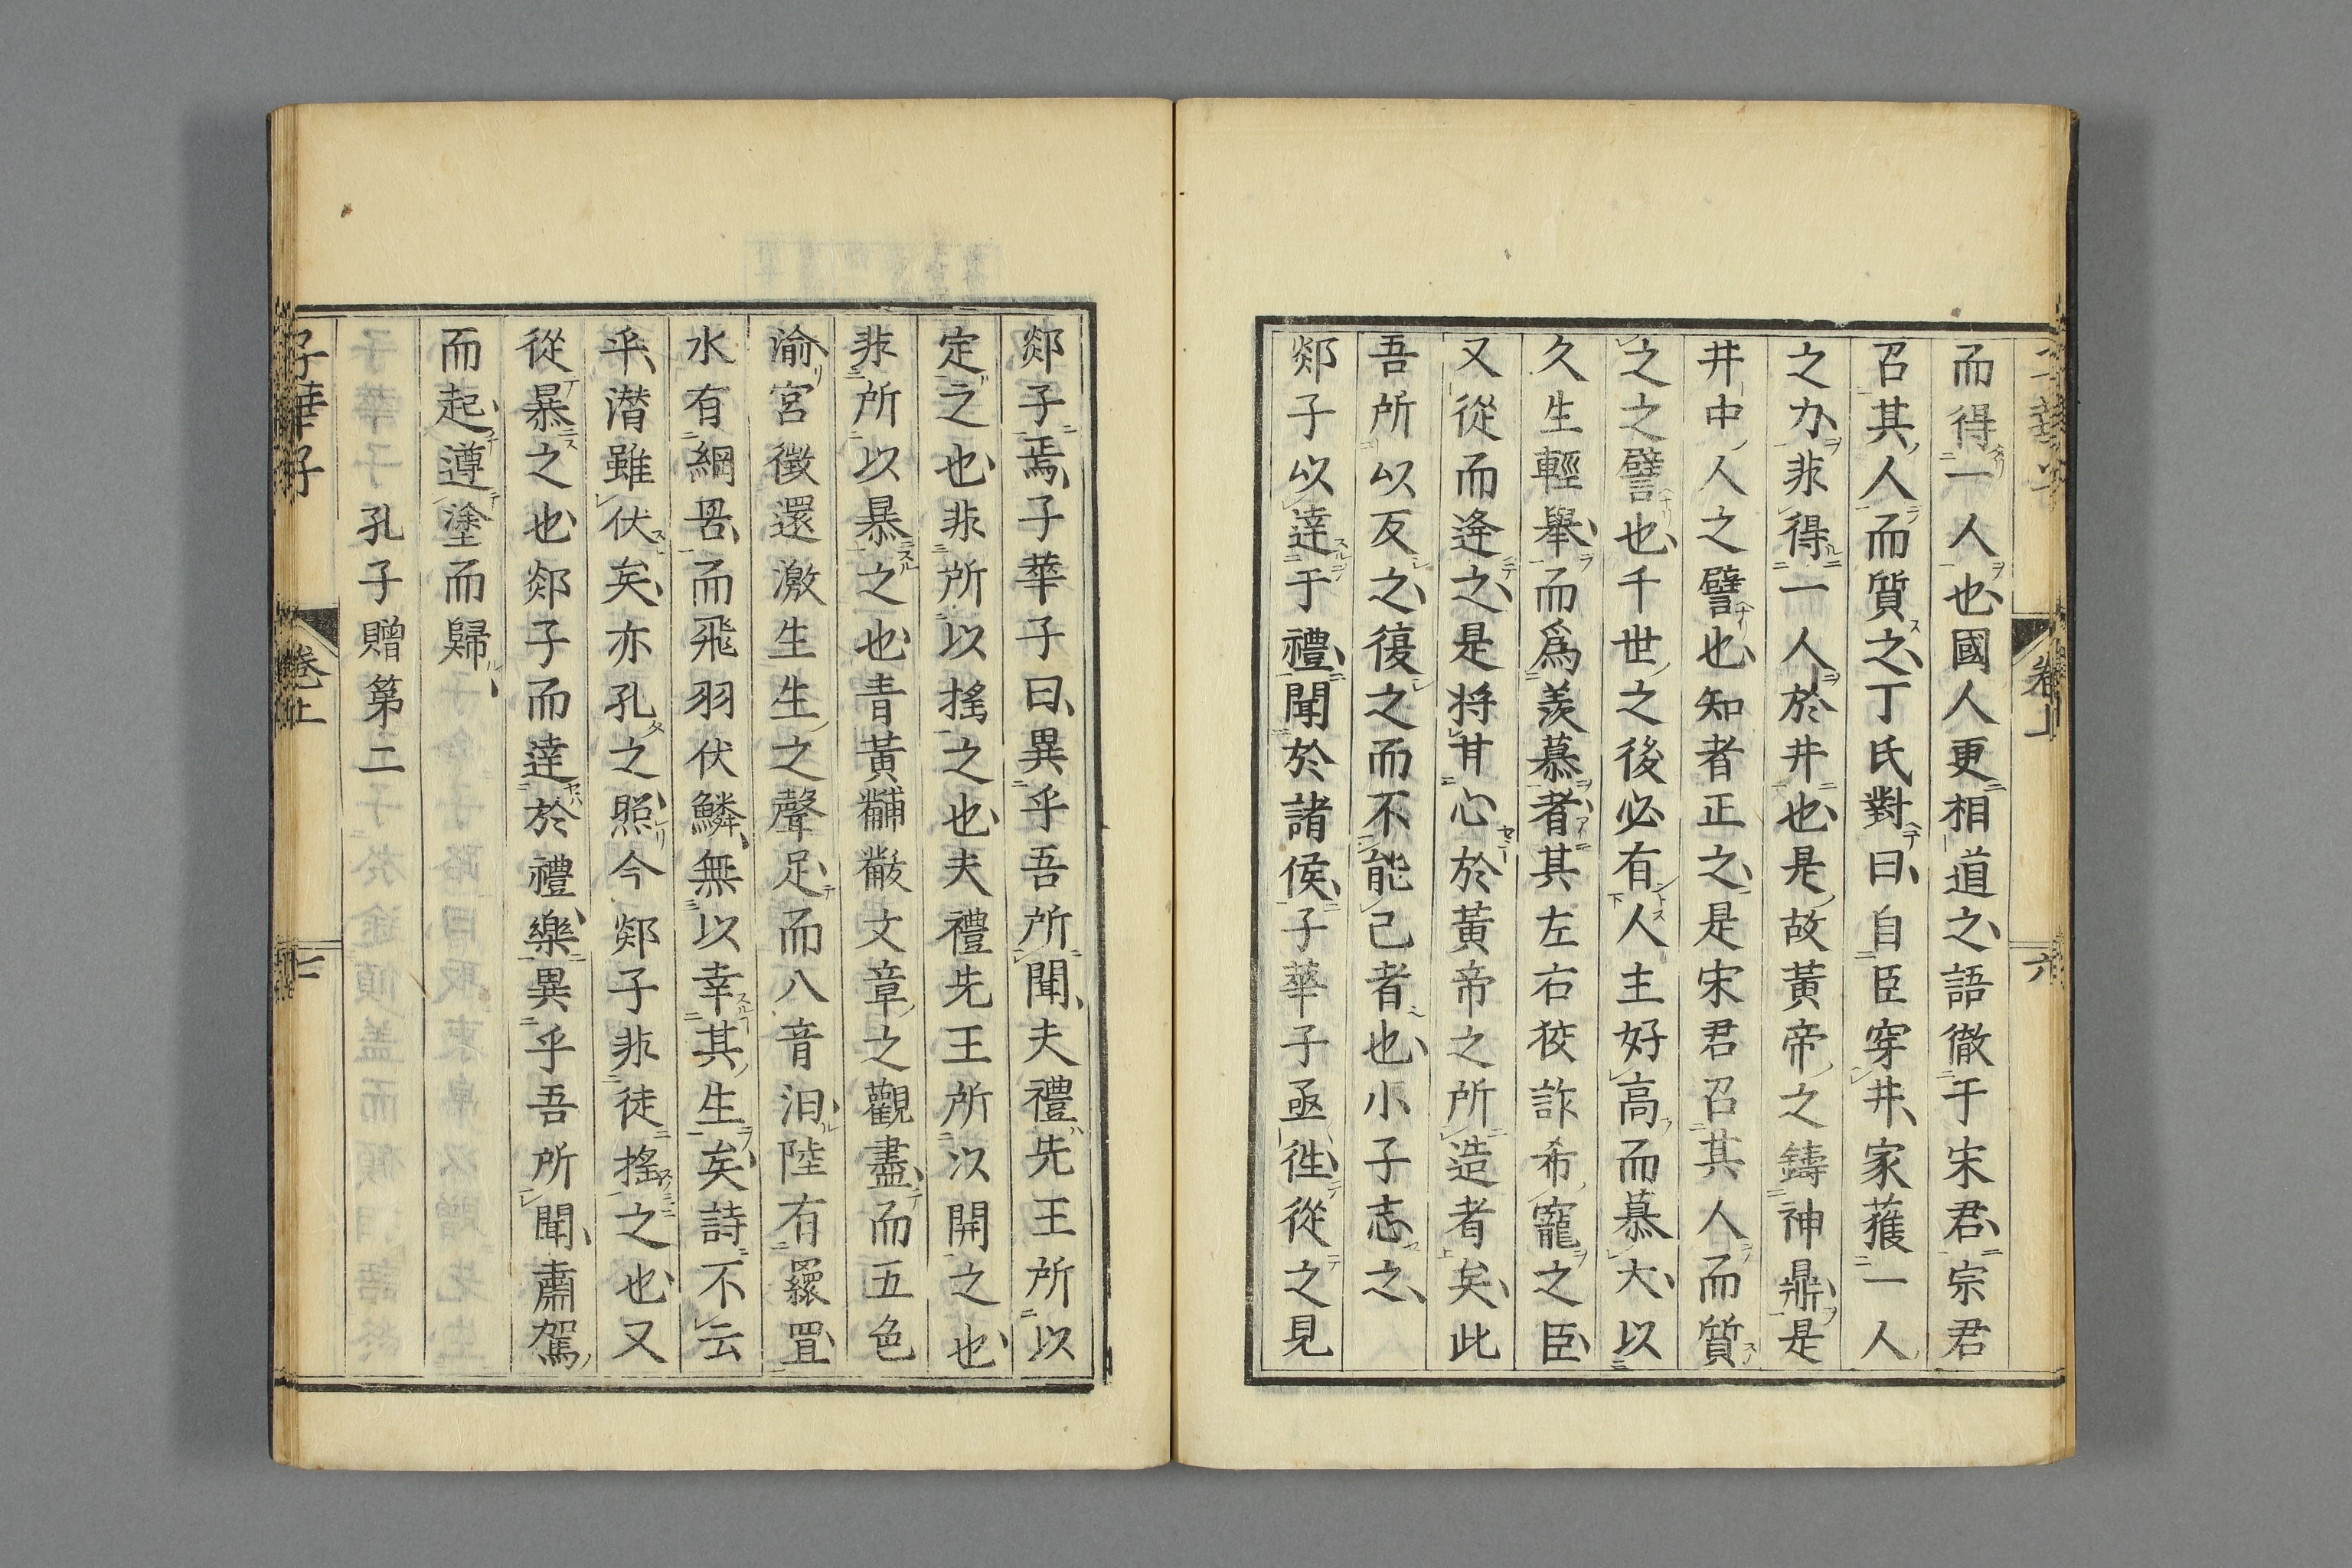 而得一人也國人更相道之語徹于宋君宗君
召其人而質之丁氏對曰自臣穿井家獲一人
之力非得一人於井也是故黃帝之鑄神鼎是
井中人之譬也知者正之是宋君召其人而質
之之譬也千世之後必有人主好高而慕大以
久生輕舉而爲羨慕者其左右狡詐希寵之臣
又從而逄之是將甘心於黃帝之所造者矣此
吾所以反之復之而不能已者也小子志之
郯子以達于禮聞於諸侯子華子亟徃從之見
卷上
六
郯子焉子華子曰異乎吾所聞夫禮先王所以
定之也非所以搖之也夫禮先王所以開之也
非所以暴之也青黃黼黻文章之觀盡而五色
渝宮徵還激生生之聲足而八音汩陸有羅罝
水有網罟而飛羽伏鱗無以幸其生矣詩不云
乎潛雖伏矣亦孔之照今郯子非徒搖之也又
從暴之也郯子而達於禮樂異乎吾所聞肅駕
而起遵塗而歸
孔子贈第二
子華子
卷上
七